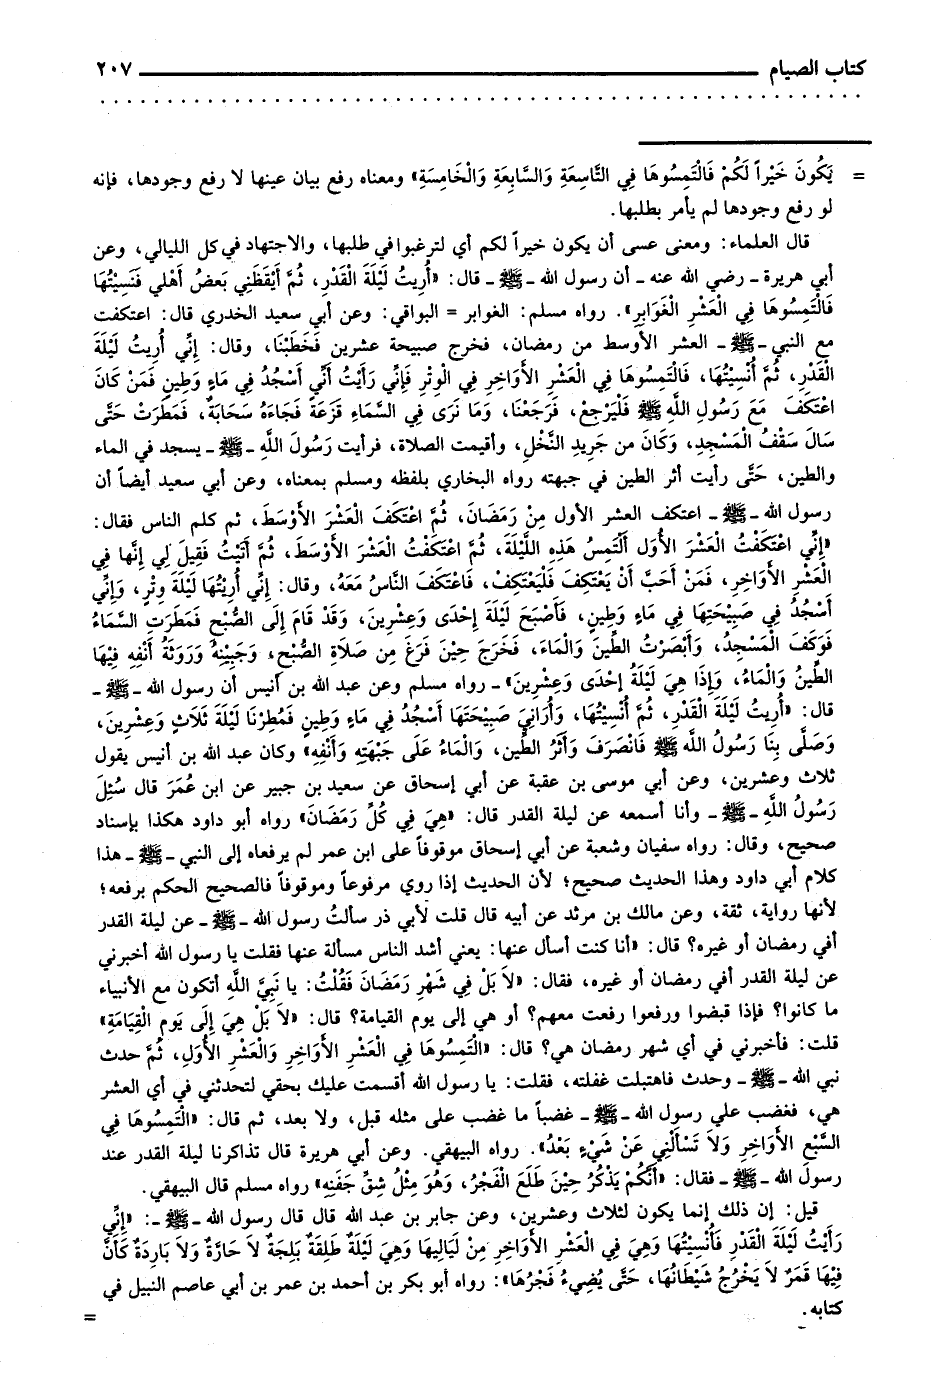 كتاب الصيام ٢٠٧
= يَكُونَ خَيْراً لَكُمْ فَالْتَمِسُوهَا فِي التَّاسِعَةِ وَالسَّابِعَةِ وَالْخَامِسَةِ» ومعناه رفع بيان عينها لا رفع وجودها، فإنه
لو رفع وجودها لم يأمر بطلبها.
قال العلماء: ومعنى عسى أن يكون خيراً لكم أي لترغبوا في طلبها، والاجتهاد في كل الليالي، وعن
أبي هريرة ـ رضي الله عنه ـ أن رسول الله ـ ﷺ ـ قال: «أُرِيتُ لَيْلَةَ الْقَدْرِ، ثُمَّ أَيْقَظَنِي بَعضُ أَهْلي فَنَسِيْتُهَا
فَالْتَمِسُوهَا فِي الْعَشْرِ الْغَوَابِرِ». رواه مسلم: الغوابر = البواقي: وعن أبي سعيد الخدري قال: اعتكفت
مع النبي ـ ﷺ ـ العشر الأوسط من رمضان، فخرج صبيحة عشرين فَخَطَبْنَا، وقال: إِنِّي أُرِيتُ لَيْلَةَ
الْقَدْرِ، ثُمَّ أُنْسِيْتُهَا، فَالتَمِسُوهَا فِي الْعَشْرِ الأَوَاخِرِ فِي الْوِتْرِ فَإِنِّي رَأَيْتُ أَنِّي أَسْجُدُ فِي مَاءٍ وَطِينٍ فَمَنْ كَانَ
اعْتَكَفَ مَعَ رَسُولِ اللَّهِ ﷺ فَلْيَرْجِعْ، فَرَجَعْنَا، وَمَا نَرَى فِي السَّمَاءِ قَزَعَةً فَجَاءَهُ سَحَابَةٌ، فَمَطَرَتْ حَتَّى
سَالَ سَقْفُ الْمَسْجِدِ، وَكَانَ من جَرِيدِ النَّخْلِ، وأقيمت الصلاة، فرأيت رَسُولَ اللَّهِ ـ ﷺ ـ يسجد في الماء
والطين، حَتَّى رأيت أثر الطين في جبهته رواه البخاري بلفظه ومسلم بمعناه، وعن أبي سعيد أيضاً أن
رسول الله ـ ﷺ ـ اعتكف العشر الأول مِنْ رَمَضَانَ، ثُمَّ اعْتَكَفَ الْعَشْرَ الأَوْسَطَ، ثم كلم الناس فقال:
«إِنِّي اعْتَكَفْتُ الْعَشْرَ الأُوَل أَلْتَمِسُ هَذِهِ اللَّيْلَةَ، ثُمَّ اعْتَكَفْتُ الْعَشْرَ الأَوْسَطَ، ثُمَّ أَتَيْتُ فَقِيلَ لِي إِنَّها فِي
الْعَشْرِ الأَوَاخِرِ، فَمَنْ أَحَبَّ أَنْ يَعْتَكِفَ فَلْيَعْتَكِفْ، فَاعْتَكَفَ النَّاسُ مَعَهُ، وقال: إِنِّي أُرِيْتُهَا لَيْلَةَ وِتْرٍ، وَإِنِّي
أَسْجُدُ فِي صَبِيْحَتِهَا فِي مَاءٍ وَطِينٍ، فَأَصْبَحَ لَيْلَةَ إِحْدَى وَعِشْرِينَ، وَقَدْ قَامَ إِلَى الصُّبْحِ فَمَطَرَتِ السَّمَاءُ
فَوَكَفَ الْمَسْجِدُ، وَأَبْصَرْتُ الطِّينَ وَالْمَاءَ، فَخَرَجَ حِيْنَ فَرَغَ مِن صَلَاةِ الصُّبْحِ، وَجَبِيْنِهُ وَرَوْثَةُ أَنْفِهِ فِيْهَا
الطِّينُ وَالْمَاءُ، وَإِذَا هِيَ لَيْلَةُ إِحْدَى وَعِشْرِينَ» ـ رواه مسلم وعن عبد الله بن أنيس أن رسول الله ـ ﷺ ـ
قال: «أُرِيتُ لَيْلَةَ الْقَدْرِ، ثُمَّ أُنْسِيْتُهَا، وَأَرَانِي صَبِيْحَتَهَا أَسْجُدُ فِي مَاءٍ وَطِينٍ فَمُطِرْنَا لَيْلَةَ ثَلَاثٍ وَعِشْرِينَ،
وَصَلَّى بِنَا رَسُولُ اللَّه ﷺ فَانْصَرَفَ وَأَثَرُ الطِّينِ، وَالْمَاءُ عَلَى جَبْهَتِهِ وَأَنْفِهِ» وكان عبد الله بن أنيس يقول
ثلاث وعشرين، وعن أبي موسى بن عقبة عن أبي إسحاق عن سعيد بن جبير عن ابن عُمَرَ قال سُئِلَ
رَسُولُ اللَّهِ ـ ﷺ ـ وأنا أسمعه عن ليلة القدر قال: «هِيَ فِي كُلِّ رَمَضَانَ» رواه أبو داود هكذا بإسناد
صحيح، وقال: رواه سفيان وشعبة عن أبي إسحاق موقوفاً على ابن عمر لم يرفعاه إلى النبي ـ ﷺ ـ هذا
كلام أبي داود وهذا الحديث صحيح؛ لأن الحديث إذا روي مرفوعاً وموقوفاً فالصحيح الحكم برفعه؛
لأنها رواية، ثقة، وعن مالك بن مرثد عن أبيه قال قلت لأبي ذر سألتُ رسول الله ـ ﷺ ـ عن ليلة القدر
أفي رمضان أو غيره؟ قال: «أنا كنت أسأل عنها: يعني أشد الناس مسألة عنها فقلت يا رسول الله أخبرني
عن ليلة القدر أفي رمضان أو غيره، فقال: «لَا بَلْ فِي شَهْرِ رَمَضَانَ فَقُلْتُ: يا نَبِيَّ اللَّهِ أتكون مع الأنبياء
ما كانوا؟ فإذا قبضوا ورفعوا رفعت معهم؟ أو هي إلى يوم القيامة؟ قال: «لَا بَلْ هِيَ إِلَى يَومِ الْقِيَامَةِ»
قلت: فأخبرني في أي شهر رمضان هي؟ قال: «الْتَمِسُوهَا فِي الْعَشْرِ الأَوَاخِرِ وَالْعَشْرِ الأُوَلِ، ثُمَّ حدث
نبي الله ـ ﷺ ـ وحدث فاهتبلت غفلته، فقلت: يا رسول الله أقسمت عليك بحقي لتحدثني في أي العشر
هي، فغضب علي رسول الله ـ ﷺ ـ غضباً ما غضب على مثله قبل، ولا بعد، ثم قال: «الْتَمِسُوهَا فِي
السَّبْعِ الأَوَاخِرِ وَلاَ تَسْأَلْنِي عَنْ شَيْءٍ بَعْدُ». رواه البيهقي. وعن أبي هريرة قال تذاكرنا ليلة القدر عند
رسول الله ـ ﷺ ـ فقال: «أَنَّكُمْ يَذْكُرُ حِيْنَ طَلَعَ الْفَجْرُ، وَهُوَ مِثْلُ شِقِّ جَفَنِهِ» رواه مسلم قال البيهقي.
قيل: إن ذلك إنما يكون لثلاث وعشرين، وعن جابر بن عبد الله قال قال رسول الله ـ ﷺ ـ: «إِنِّي
رَأَيْتُ لَيْلَةَ الْقَدْرِ فَأُنْسِيْتُهَا وَهِيَ فِي الْعَشْرِ الأَوَاخِرِ مِنْ لَيَالِيهَا وَهِيَ لَيْلَةٌ طَلِقَةٌ بَلِجَةٌ لاَ حَارَّةٌ وَلاَ بَارِدَةٌ كَأَنَّ
فِيْهَا قَمَرٌ لاَ يَخْرُجُ شَيْطَانُهَا، حَتَّى يُضِيءُ فَجْرُهَا»: رواه أبو بكر بن أحمد بن عمر بن أبي عاصم النبيل في
كتابه. =